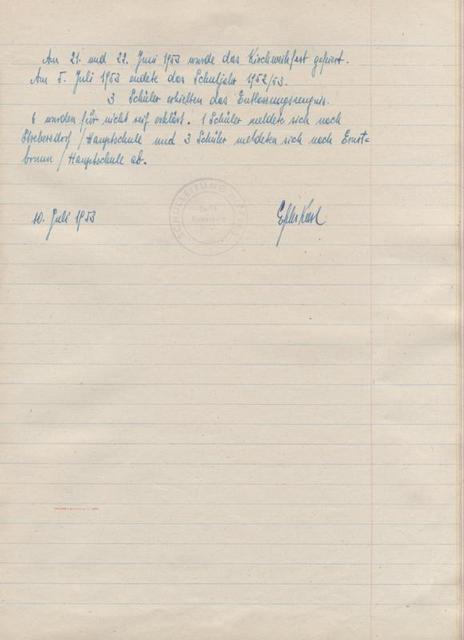 Am 21. und 22. Juni 1953 wurde das Kirchweihfest gefeiert.
Am 5. Juli 1953 endete das Schuljahr 1952/53.
3 Schüler erhielten das Entlassungszeugnis.
6 wurden für nicht reif erklärt. 1 Schüler meldete sich nach
Strebersdorf / Hauptschule und 3 Schüler meldeten sich nach Ernst-
brunn / Hauptschule ab.
10. Juli 1953
SCHULLEITUNG